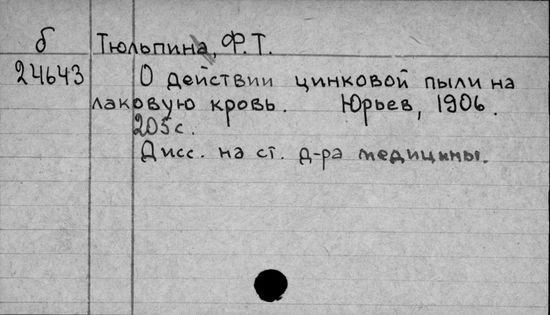 б Тюльпина, Ф.Т.
24643 О действии цинковой пыли на
лаковую кровь. Юрьев, 1906.
205с.
Дисс. на ст. д-ра медицины.